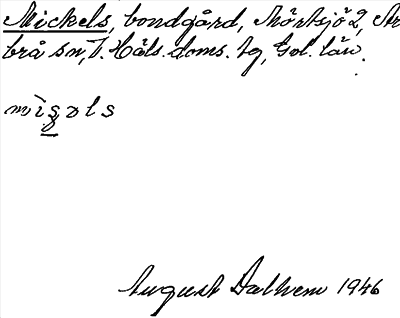 Mickels, bondgård, Mörtsjö 2, Ar
brå sn, V. Häls. doms. tg, Gvl. län.
mìgəls
August Dalhem 1946